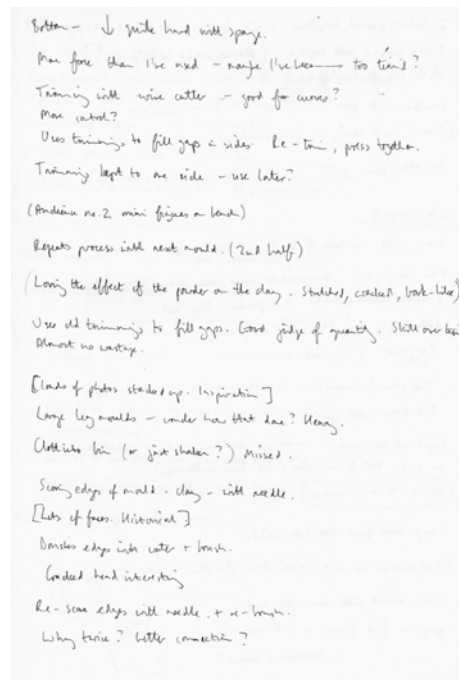 Bottom - ↓ quite hard with sponge.
More force than I've used - maybe I've been too timid?
Trimming with wire cutter - good for curves?
More control?
Uses trimmings to fill gaps @ sides. Re-trim, press together.
Trimming kept to one side - use later?
(Audience no. 2 mini figures on bench)
Repeats process with next mould. (2nd half)
(Loving the effect of the powder on the clay. Stretched, cracked, bark-like)
Uses old trimmings to fill gaps. Good judge of quantity. Skill over
Almost no wastage.
[Loads of photos stacked up. Inspiration]
Large leg moulds - wonder how that done? Heavy.
Cloth into bin (or just shaken?) Missed.
Scoring edges of mould - clay - with needle.
[Lots of faces. Historical]
edges with water + brush.
head interesting
Re-score edges with needle. + re-brush.
Why twice? better connection?